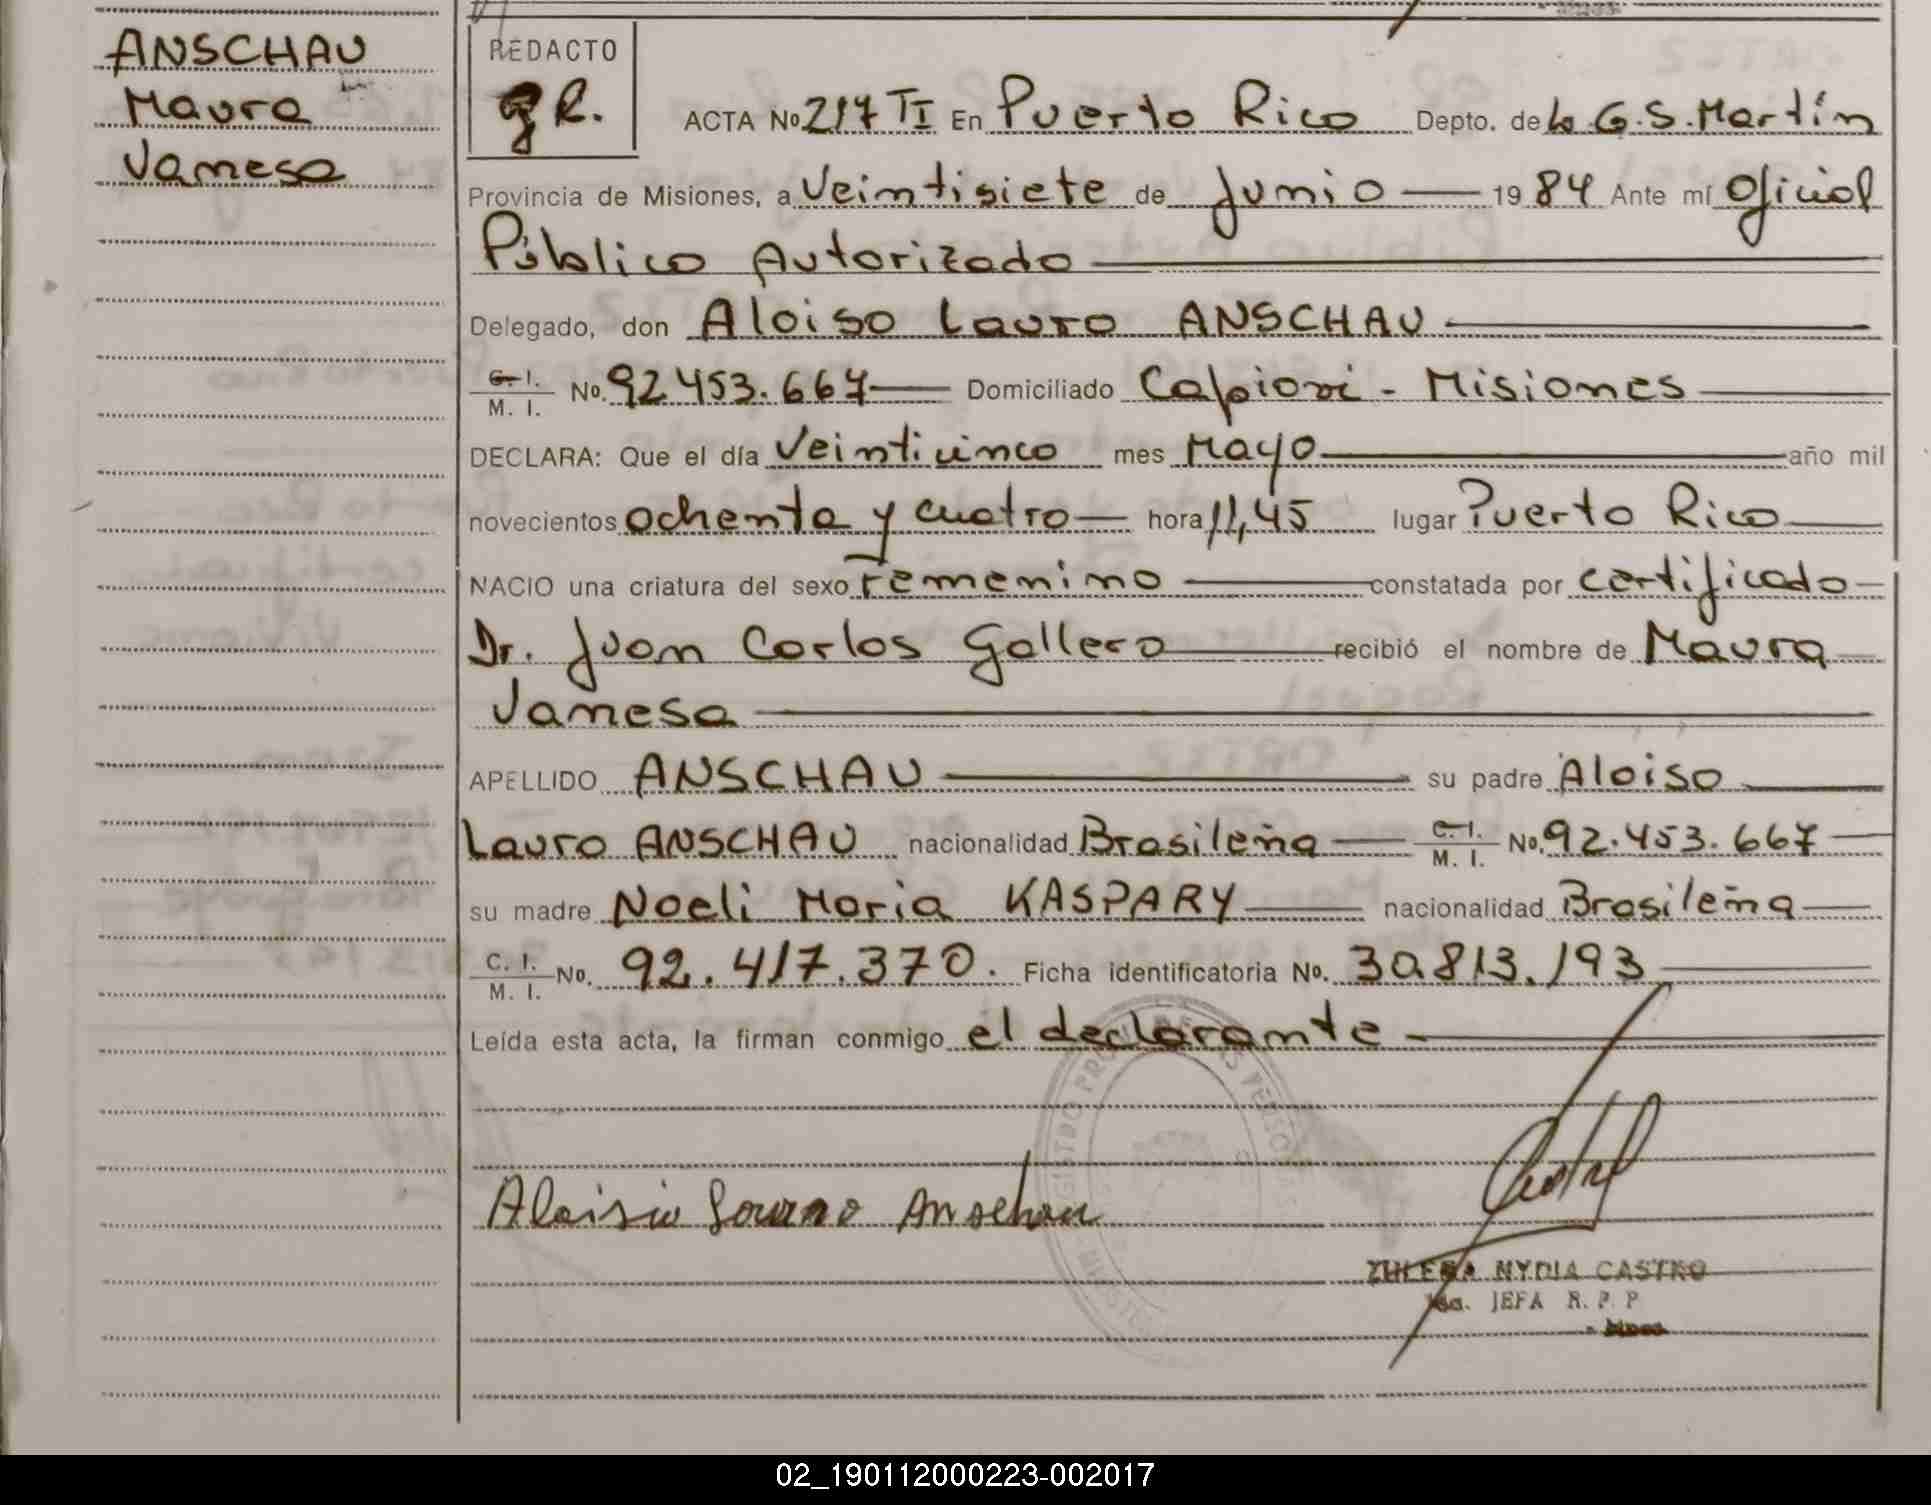 ANSCHAU
Maura
Vanesa
REDACTO
gR.
ACTA No 217 TI En Puerto Rico Depto. de Lb. G. S. Martín
Provincia de Misiones, a Veintisiete de Junio 1984 Ante mí Oficial
Público Autorizado
Delegado, don Aloiso Lauro ANSCHAU
C. I. / M. I. No. 92.453.667 Domiciliado Capioví - Misiones
DECLARA: Que el día Veinticinco mes Mayo año mil
novecientos ochenta y cuatro hora 11,45 lugar Puerto Rico
NACIO una criatura del sexo Femenino constatada por certificado
Dr. Juan Carlos Gallero recibió el nombre de Maura
Vanesa
APELLIDO ANSCHAU su padre Aloiso
Lauro ANSCHAU nacionalidad Brasileña C. I. / M. I. No. 92.453.667
su madre Noeli Maria KASPARY nacionalidad Brasileña
C. I. / M. I. No. 92.417.370. Ficha identificatoria No. 30.813.193
Leída esta acta, la firman conmigo el declarante
Aloisio Lauro Anschau
Castro
ZULEMA NYDIA CASTRO
JEFA R. P. P
02_190112000223-002017